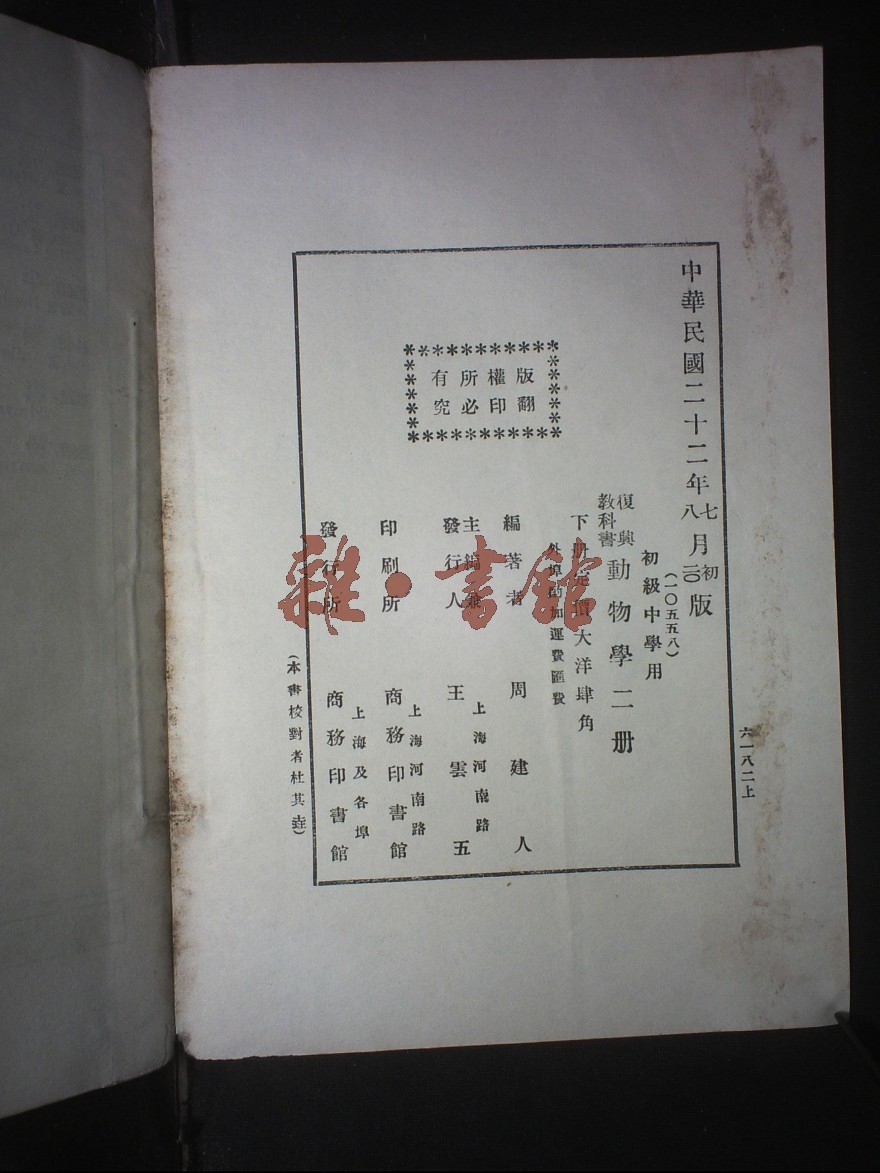 六一八二上
中華民國二十二年七月初版
八月二〇版
(一〇五五八)
初級中學用
復興教科書
動物學二册
下册定價大洋肆角
外埠酌加運費匯費
編著者 周建人
主編兼發行人 王雲五
上海河南路
印刷所 商務印書館
上海河南路
發行所 商務印書館
上海及各埠
版權所有
翻印必究
(本書校對者杜其垚)
雜·書館